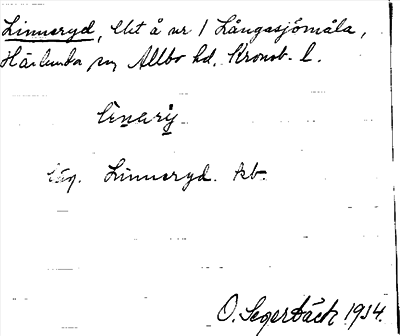 Linneryd, Ut å nr 1 Långasjömåla,
Härlunda sn Allbo hd. Kronob. l.
lineri̱y
Linneryd. kb.
O. Segerbäck 1934.